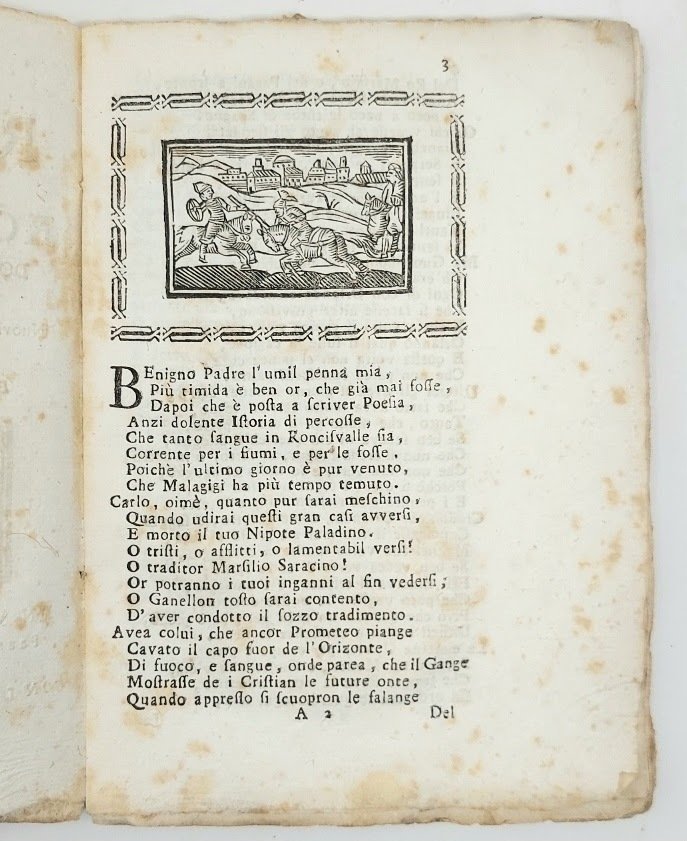 3
BEnigno Padre l'umil penna mia,
Più timida è ben or, che già mai foſſe,
Dapoi che è poſta a ſcriver Poeſia,
Anzi dolente Iſtoria di percoſſe,
Che tanto ſangue in Ronciſvalle ſia,
Corrente per i fiumi, e per le foſſe.
Poichè l'ultimo giorno è pur venuto,
Che Malagigi ha più tempo temuto.
Carlo, oimè, quanto pur ſarai meſchino,
Quando udirai queſti gran caſi avverſi,
E morto il tuo Nipote Paladino.
O triſti, o afflitti, o lamentabil verſi!
O traditor Marſilio Saracino!
Or potranno i tuoi inganni al fin vederſi;
O Ganellon toſto ſarai contento,
D'aver condotto il ſozzo tradimento.
Avea colui, che ancor Prometeo piange
Cavato il capo fuor de l'Orizonte,
Di fuoco, e ſangue, onde parea, che il Gange
Moſtraſſe de i Criſtian le future onte,
Quando appreſſo ſi ſcuopron le falange
A 2 Del